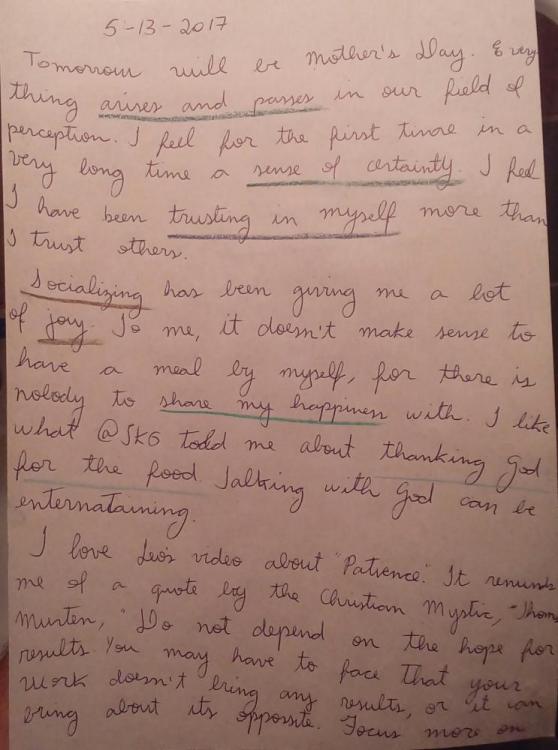 5-13-2017
Tomorrow will be Mother's Day. Every
thing arises and passes in our field of
perception. I feel for the first time in a
very long time a sense of certainty. I feel
I have been trusting in myself more than
I trust others.
Socializing has been giving me a lot
of joy. To me, it doesn't make sense to
have a meal by myself, for there is
nobody to share my happiness with. I like
what @SKG todd me about thanking God
for the food. Talking with God can be
enternataining.
I love Leo's video about "Patience". It reminds
me of a quote by the Christian Mystic, "Thom
Munten, "Do not depend on the hope for
results. You may have to face that your
work doesn't bring any results, or it can
bring about its opposite. Focus more on